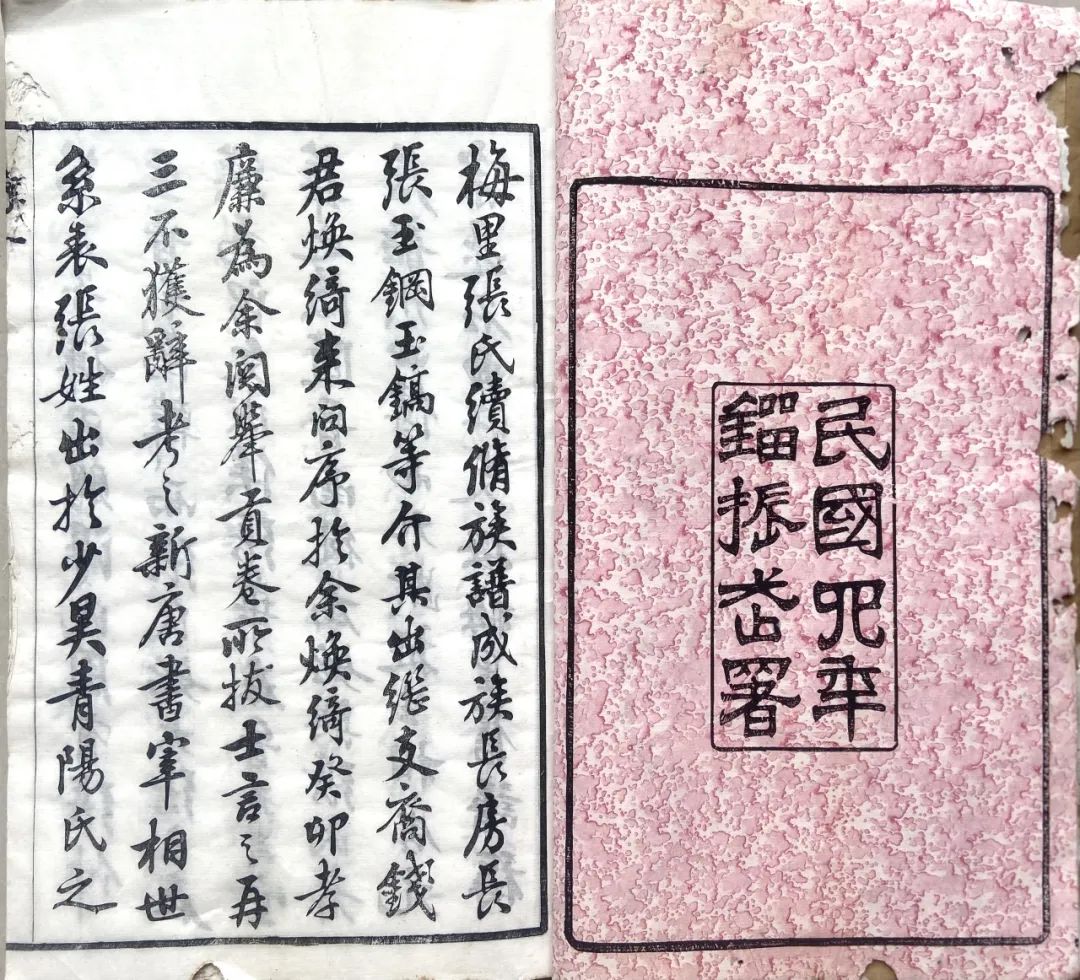 民國四年
鎦振署
梅里張氏續脩族譜成族長房長
張玉鋼玉鎬等介其出繼支裔錢
君煥綺來問序於余煥綺癸卯孝
廉為余閱舉貢卷所拔士言之再
三不獲辭考之新唐書宰相世
系表張姓出於少昊青陽氏之